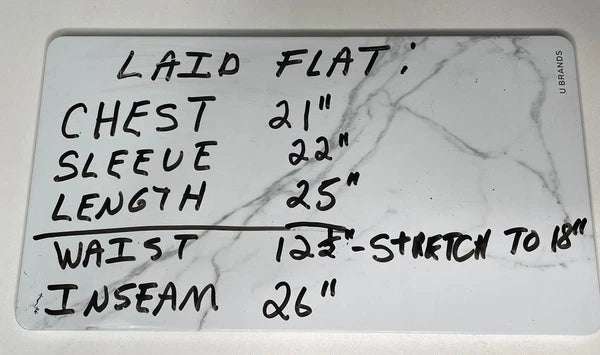 LAID FLAT:
CHEST 21"
SLEEVE 22"
LENGTH 25"
WAIST 12½" - STRETCH TO 18"
INSEAM 26"
U BRANDS